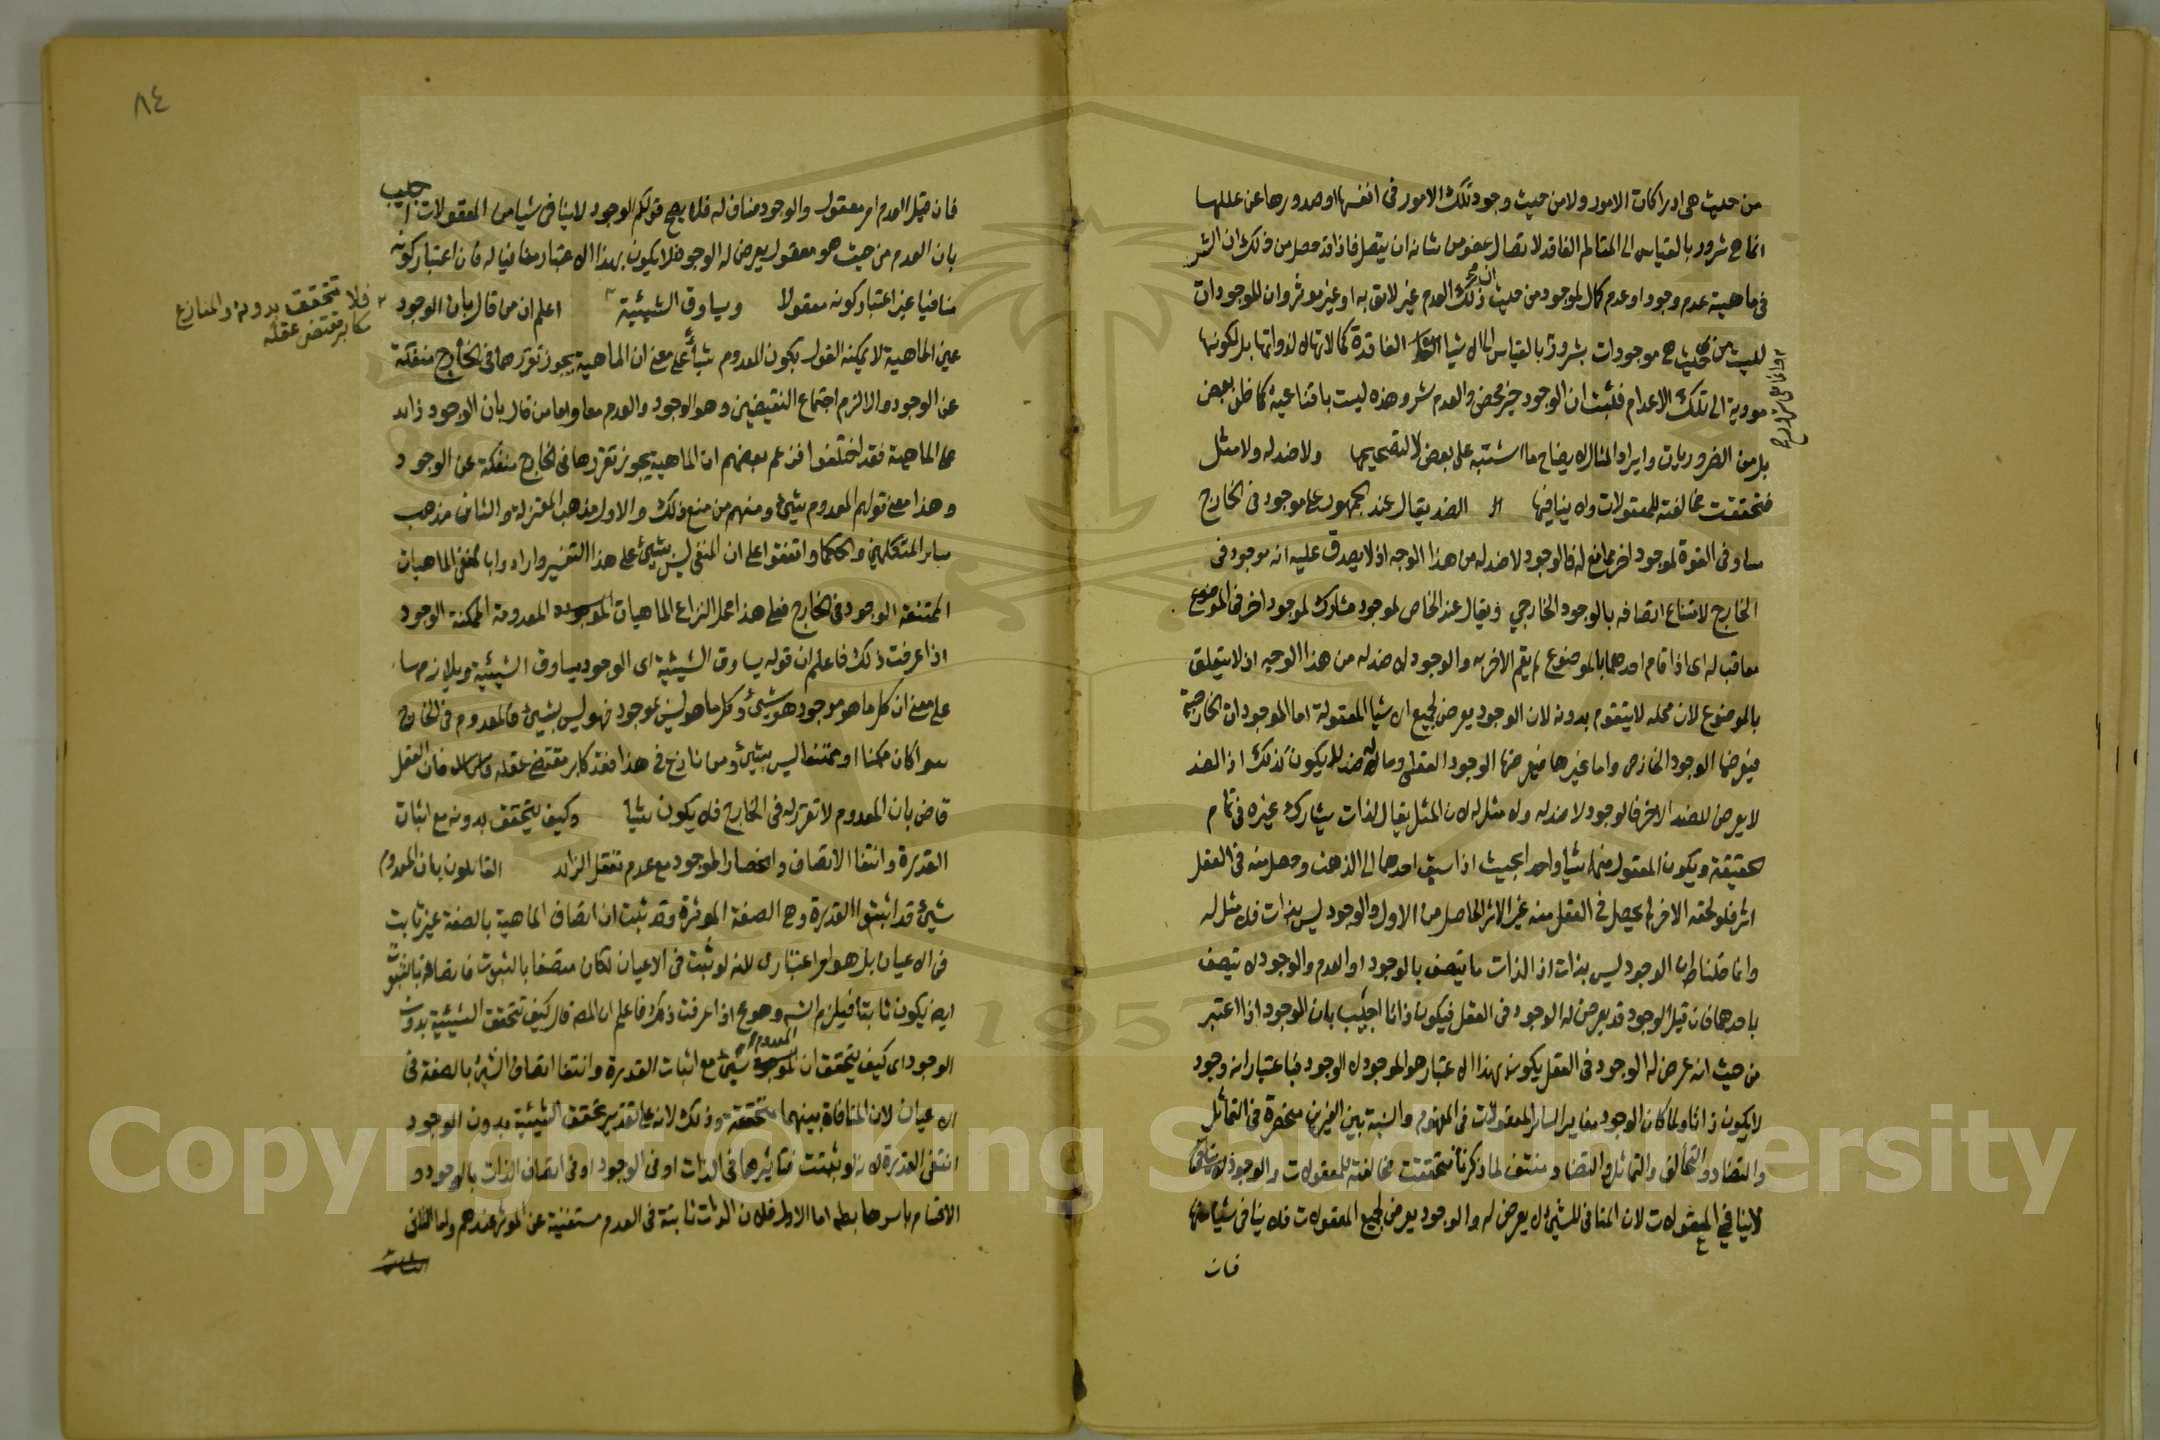 من حيث هي ادراكات الامور ولا من حيث وجود تلك الامور في انفسها او صدورها عن عللها
انما هي شرور بالقياس الى المتالم الفاقد لاتصال عضو من شانه ان يتصل فاذا قد حصل من ذلك ان الشر
في ماهيته عدم وجود او عدم كمال لموجود من حيث ان ذلك العدم غير لايق به او غير موثر وان الموجودات
ليست من حيث هي موجودات بشرور بالقياس الى الاشيا الفاقدة كمالاتها لا لذواتها بل لكونها
وانما هي شرور
مودية الى تلك الاعدام فثبت ان الوجود خير محض والعدم شر وهذه ليست باقناعية كما ظن بعض
بل من الضروريات وايراد المثال لايضاح ما اشتبه على بعض لا لتصحيحها ولا ضد له ولا مثل
فتحققت مخالفته للمعقولات ولا ينافيها الضد يقال عند الجمهور على موجود في الخارج
مساو في القوة لموجود اخر ممانع له فالوجود لا ضد له من هذا الوجه اذ لا يصدق عليه انه موجود في
الخارج لامتناع اتصافه بالوجود الخارجي ويقال عند الخاص لموجود مشارك لموجود اخر في الموضوع
معاقب له اى اذا قام احدهما بالموضوع لم يقم الاخر به والوجود لا ضد له من هذا الوجه اذ لا يتعلق
بالموضوع لان محله لا يتقوم بدونه لان الوجود يعرض لجميع الاشيا المعقولة اما الموجودات الخارجية
فيعرضها الوجود الخارجي واما غيرها فيعرضها الوجود العقلي وما له ضد لا يكون كذلك اذ الضد
لا يعرض للضد الاخر فالوجود لا ضد له ولا مثل له لان المثل يقال لذات يشارك غيره في تمام
حقيقته ويكون المعقول منهما شيا واحدا بحيث اذا سبق احدهما الى الذهن وحصل منه في العقل
اثر فلو لحقه الاخر لم يحصل في العقل منه غير الاثر الحاصل من الاول والوجود ليس بذات فلا مثل له
وانما قلنا ان الوجود ليس بذات اذ الذات ما يتصف بالوجود او العدم والوجود لا يتصف
باحدهما فان قيل الوجود قد يعرض له الوجود في العقل فيكون ذاتا اجيب بان الوجود اذا اعتبر
من حيث انه عرض له الوجود في العقل يكون بهذا الاعتبار هو الموجود لا الوجود فباعتبار انه وجود
لا يكون ذاتا ولما كان الوجود مغايرا لساير المعقولات في المفهوم والنسبة بين الغيرين منحصرة في التماثل
والتضاد والتخالف والتماثل والتضاد منتف لما ذكرنا فتحققت مخالفته للمعقولات والوجود
لا ينافي المعقولات لان المنافي للشئ لا يعرض له والوجود يعرض لجميع المعقولات فلا ينافي شيا منها
فان
٨٤
فان قيل العدم امر معقول والوجود مناف له فلا يصح قولكم الوجود لا ينافي شيا من المعقولات اجيب
بان العدم من حيث هو معقول يعرض له الوجود فلا يكون بهذا الاعتبار منافيا له فان اعتبار كونه
منافيا غير اعتبار كونه معقولا ويساوق الشيئية اعلم ان من قال بان الوجود
فلا تتحقق بدونه والمنازع
مكابر مقتضى عقله
عين الماهية لا يمكنه القول بكون المعدوم شيأ على معنى ان الماهية يجوز تقررها في الخارج منفكة
عن الوجود والا لزم اجتماع النقيضين وهو الوجود والعدم معا واما من قال بان الوجود زايد
على الماهية فقد اختلفوا فزعم بعضهم ان الماهية يجوز تقررها في الخارج منفكة عن الوجود
وهذا معنى قولهم المعدوم شيئ ومنهم من منع ذلك والاول مذهب المعتزلة والثاني مذهب
ساير المتكلمين والحكما واتفقوا على ان المنفي ليس بشيئ على هذا التفسير وارادوا بالمنفي الماهيات
الممتنعة الوجود في الخارج فعلى هذا محل النزاع الماهيات المعدومة الممكنة الوجود
اذا عرفت ذلك فاعلم ان قوله يساوق الشيئية اى الوجود يساوق الشيئية ويلازمها
على معنى ان كل ما هو موجود هو شيئ وكل ما هو ليس بموجود فهو ليس بشيئ فالمعدوم في الخارج
سوا كان ممكنا او ممتنعا ليس بشيئ ومن نازع في هذا فقد كابر مقتضى عقله فان العقل
قاض بان المعدوم لا تقرر له في الخارج فلا يكون شيا وكيف يتحقق بدونه مع اثبات
القدرة وانتفا الاتصاف وانحصار الموجود مع عدم تعقل الزائد القائلون بان المعدوم
شيئ قد اثبتوا القدرة وهي الصفة الموثرة وقد ثبت ان اتصاف الماهية بالصفة غير ثابت
في الاعيان بل هو امر اعتباري لانه لو ثبت في الاعيان لكان متصفا بالثبوت فاتصافه بالثبوت
ايضا يكون ثابتا فيلزم التس وهو مح اذا عرفت ذلك فاعلم ان المصـ قال كيف تتحقق الشيئية بدون
الوجود اى كيف يتحقق ان المعدوم شيئ مع اثبات القدرة وانتفا اتصاف الشئ بالصفة في
الاعيان لان المنافاة بينهما متحققة وذلك لانه على تقدير تحقق الشيئية بدون الوجود
انتفى القدرة لانه لو ثبتت فتاثيرها في الذات او في الوجود او في اتصاف الذات بالوجود و
الاقسام باسرها بطـ اما الاول فلان الذات ثابتة في العدم مستغنية عن الموثر عندهم واما الثاني
Copyright © King Saud University
1957